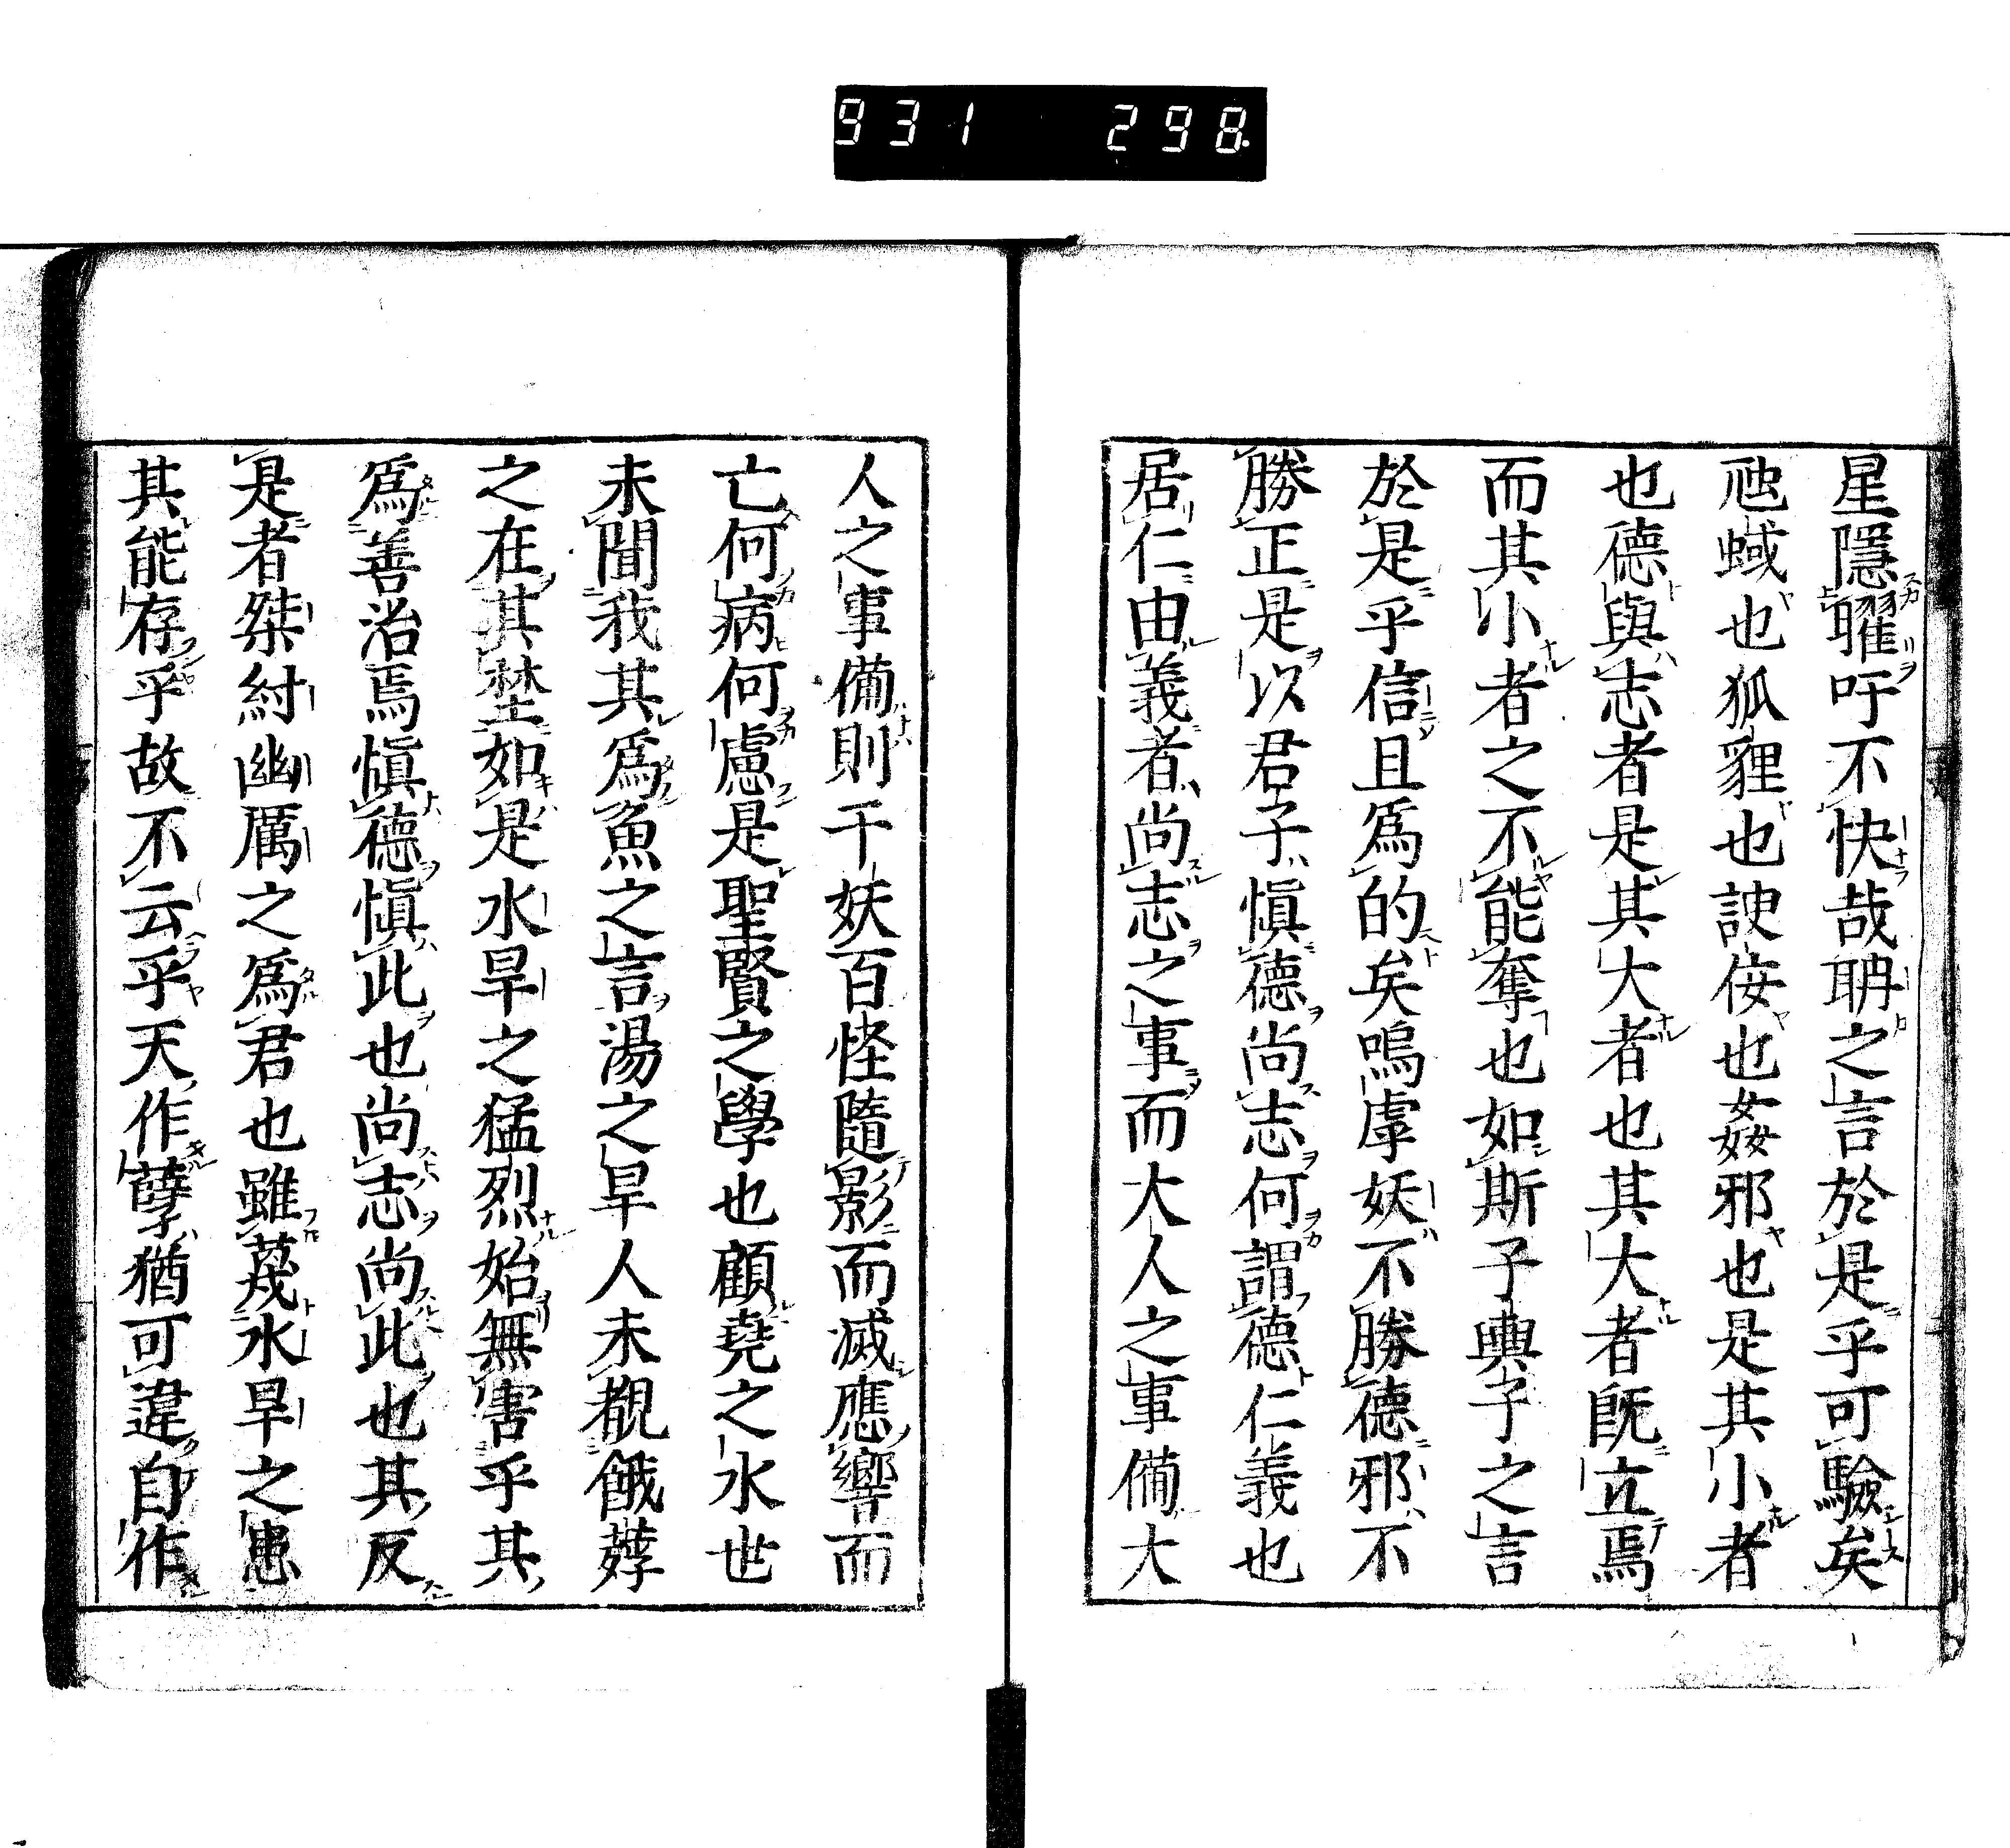 931 298
星隱曜吁不快哉聃之言於是乎可驗矣
虺蜮也狐貍也諛佞也姦邪也是其小者
也德與志者是其大者也其大者既立焉
而其小者之不能奪也如斯子輿子之言
於是乎信且爲的矣嗚虖妖不勝德邪不
勝正是以君子愼德尚志何謂德仁義也
居仁由義者尚志之事而大人之事備大
人之事備則千妖百怪隨影而滅應響而
亡何病何慮是聖賢之學也顧堯之水世
未聞我其爲魚之言湯之旱人未覩餓莩
之在其埜如是水旱之猛烈始無害乎其
爲善治焉愼德愼此也尚志尚此也其反
是者桀紂幽厲之爲君也雖蔑水旱之患
其能存乎故不云乎天作孽猶可違自作